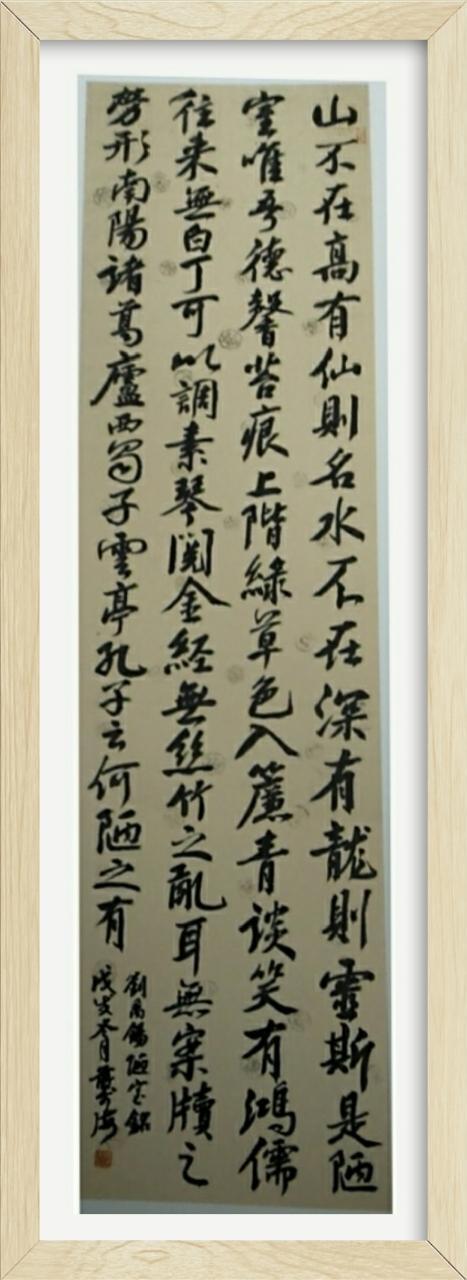 山不在高有仙則名水不在深有龍則靈斯是陋
室唯吾德馨苔痕上階綠草色入簾青談笑有鴻儒
往來無白丁可以調素琴閱金經無絲竹之亂耳無案牘之
勞形南陽諸葛廬西蜀子雲亭孔子云何陋之有
劉禹錫陋室銘